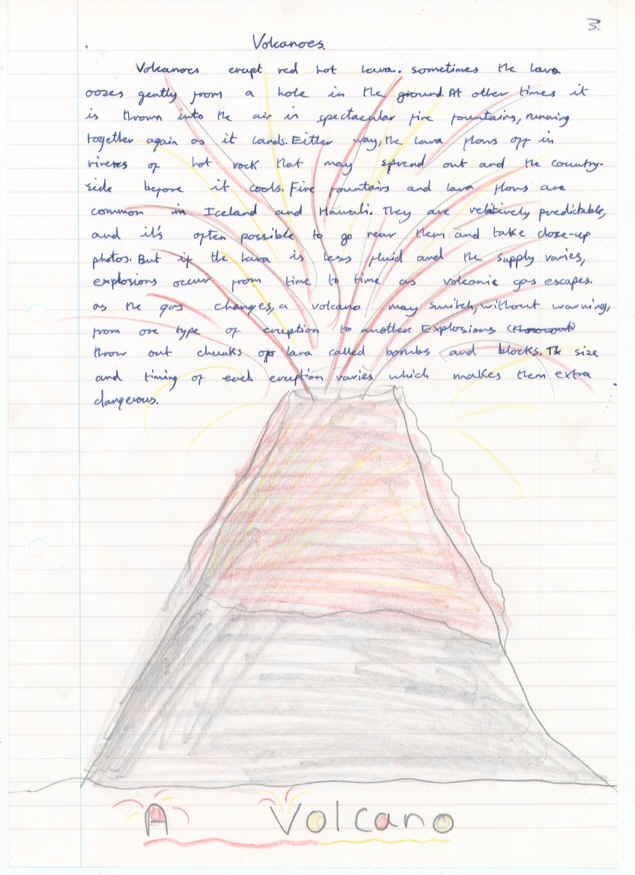 3.
Volcanoes.
Volcanoes erupt red hot lava. sometimes the lava
oozes gently from a hole in the ground At other times it
is thrown into the air in spectacular fire fountains, running
together again as it lands. Either way, the lava flows off in
riveres of hot rock that may spread out and the country-
side before it cools. Fire fountains and lava flows are
common in Iceland and Hawaii. They are relatively predictable,
and it's often possible to go near them and take close-up
photos. But if the lava is less fluid and the supply varies,
explosions occur from time to time as volcanic gas escapes.
as the gas changes, a volcano may switch, without warning,
from one type of eruption to another. Explosions
throw out chunks of lava called bombs and blocks. The size
and timing of each eruption varies which makes them extra
dangerous.
A Volcano